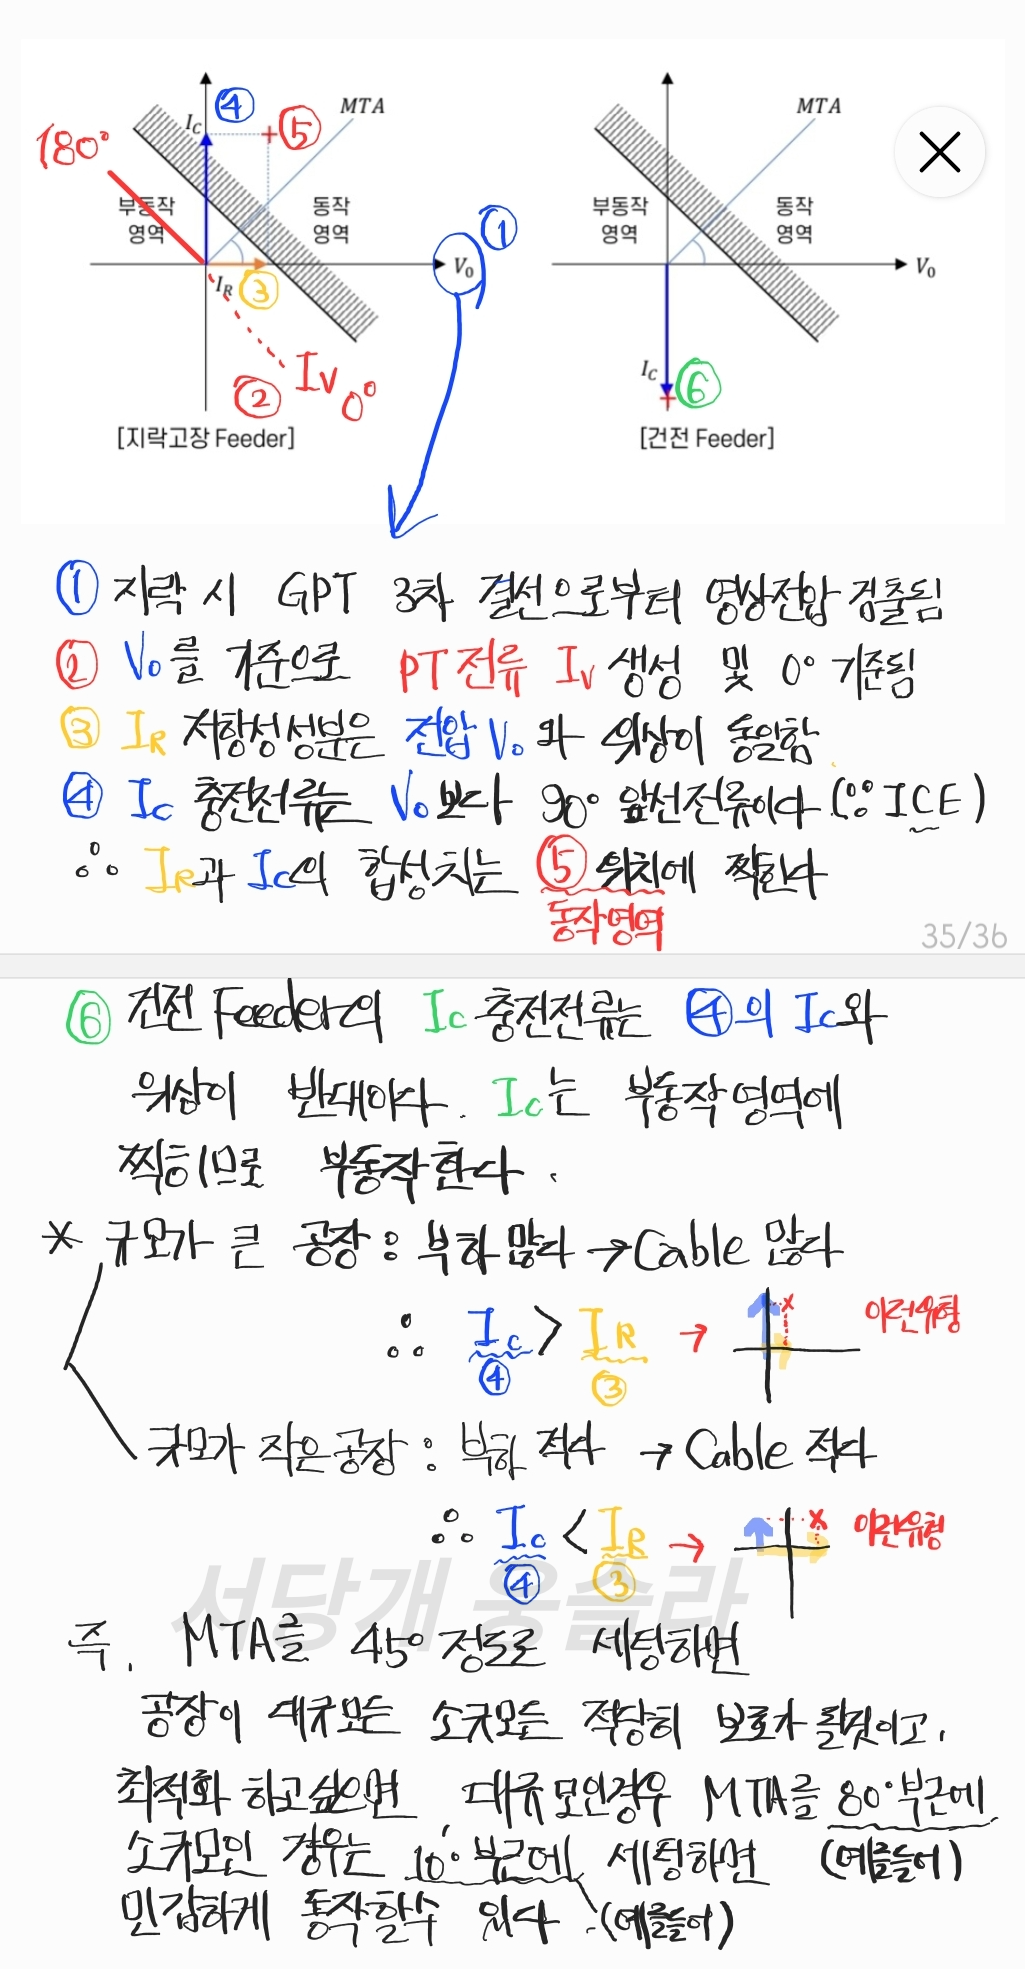 180°
I_C ④ ⑤ MTA
부동작 영역
동작 영역
①
V₀
I_R ③
② Iv 0°
[지락고장 Feeder]
MTA
부동작 영역
동작 영역
V₀
I_C ⑥
[건전 Feeder]
① 지락 시 GPT 3차 결선으로부터 영상전압 검출됨
② V₀를 기준으로 PT전류 Iv 생성 및 0° 기준됨
③ I_R 저항성성분은 전압 V₀와 위상이 동일함.
④ Ic 충전전류는 V₀보다 90° 앞선전류이다 (∵ ICE)
∴ I_R과 Ic의 합성치는 ⑤ 위치에 찍힌다
동작영역
35/36
⑥ 건전 Feeder의 Ic 충전전류는 ④의 Ic와
위상이 반대이다. Ic는 부동작영역에
찍히므로 부동작한다.
* 규모가 큰 공장 : 부하 많다 → Cable 많다
∴ Ic > I_R → x 이런유형
④ ③
규모가 작은공장 : 부하 적다 → Cable 적다
∴ Ic < I_R → x 이런유형
④ ③
서당개 웅슬라
즉, MTA를 45° 정도로 세팅하면
공장이 대규모든 소규모든 적당히 보호가 될것이고,
최적화 하고싶으면 대규모인경우 MTA를 80° 부근에
소규모인 경우는 10° 부근에 세팅하면 (예를들어)
민감하게 동작할수 있다. (예를들어)